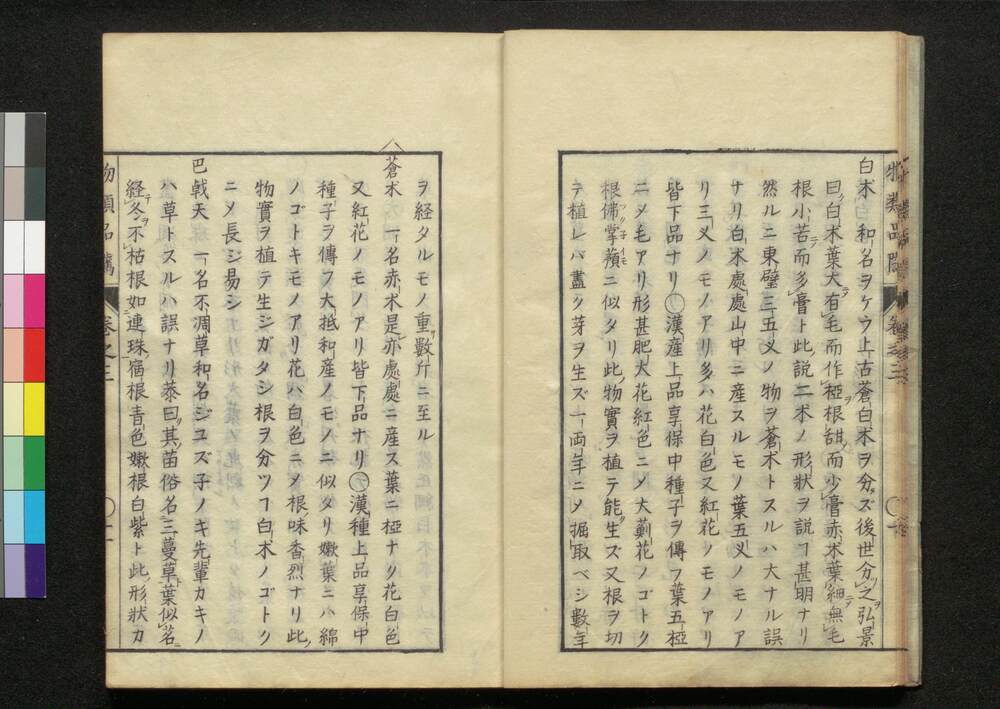 白朮 和名ヲケウ上古蒼白朮ヲ分ズ後世分之弘景
曰白朮葉大有毛而作椏根甜而少膏赤朮葉細無毛
根小苦而多膏ト此説二朮ノ形狀ヲ説フ甚明ナリ
然ルニ東璧三五叉ノ物ヲ蒼朮トスルハ大ナル誤
ナリ白朮處處山中ニ産スルモノ葉五叉ノモノア
リ三叉ノモノアリ多ハ花白色又紅花ノモノアリ
皆下品ナリ〇漢産上品享保中種子ヲ傳フ葉五椏
ニメ毛アリ形甚肥大花紅色ニメ大薊花ノゴトク
根佛掌蘋ニ似タリ此物實ヲ植テ能生ズ又根ヲ切
テ植レバ盡ク芽ヲ生ズ一両年ニメ掘取ベシ數年
物類品隲 巻之三
ヲ経タルモノ重數斤ニ至ル
蒼朮 一名赤朮是亦處處ニ産ス葉ニ椏ナク花白色
又紅花ノモノアリ皆下品ナリ〇漢種上品享保中
種子ヲ傳フ大抵和産ノモノニ似タリ嫩葉ニハ綿
ノゴトキモノアリ花ハ白色ニメ根味香烈ナリ此
物實ヲ植テ生ジガタシ根ヲ分ツフ白朮ノゴトク
ニメ長ジ易シ
巴戟天 一名不凋草和名ジユズ子ノキ先輩カキノ
ハ草トスルハ誤ナリ恭曰其苗俗名三蔓草葉似茗
経冬不枯根如連珠宿根青色嫩根白紫ト此形狀カ
物類品隲 巻之三